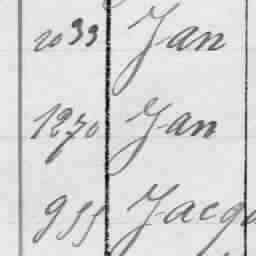 2033 Jan
1270 Jan
955 Jacqu